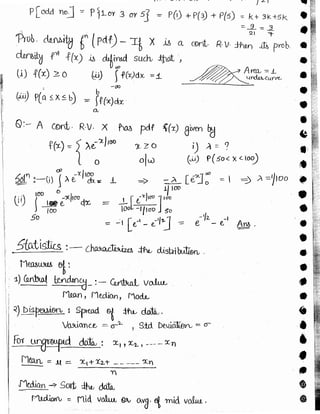 P[odd no.] = P{1 or 3 or 5} = P(1) + P(3) + P(5) = k + 3k + 5k
= 9/21 = 3/7
Prob. density fⁿ (pdf) - If X is a cont. R.V. then its prob.
density fⁿ f(x) is defined such that,
(i) f(x) ≥ 0 (ii) ∫_{-∞}^{∞} f(x)dx = 1 Area = 1 under curve
(iii) P(a ≤ x ≤ b) = ∫_a^b f(x)dx
Q:- A cont. R.V. X has pdf f(x) given by
f(x) = { λe^{-x/100} x ≥ 0 i) λ = ?
0 o/w (ii) P(50 < x < 100)
Solⁿ :- (i) ∫_0^∞ λ e^{-x/100} dx = 1 ⇒ -λ/(1/100) [e^{-x}]_0^∞ = 1 ⇒ λ = 1/100
(ii) ∫_{50}^{100} 1/100 e^{-x/100} dx = 1/100 [e^{-x/100}/(-1/100)]_{50}^{100}
= -1 [e^{-1} - e^{-1/2}] = e^{-1/2} - e^{-1} Ans.
Statistics :- characterizes the distribution.
Measures of :
1) Central tendency :- Central value
Mean, Median, Mode
2) Dispersion : Spread of the data.
Variance = σ², Std Deviation = σ
For ungrouped data : x₁, x₂, ------ xn
Mean = μ = x₁ + x₂ + ------ xn / n
Median → Sort the data
Median = Mid value or avg. of mid value.